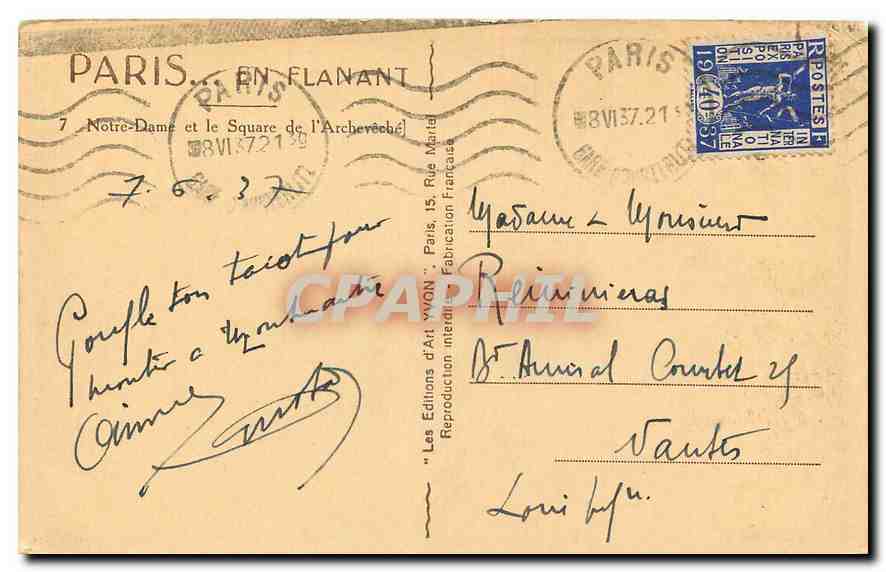 PARIS... EN FLANANT
7 Notre-Dame et le Square de l'Archevêché
PARIS
8 VI 37. 21 30
7.6.37
Gonfle ton tacot pour
monter a Montmartre
"Les Editions d'Art YVON", Paris, 15, Rue Martel
Reproduction interdite Fabrication Française
PARIS
8 VI 37. 21 30
RF POSTES
PARIS EXPOSITION
INTERNATIONALE
1937
40
Madame & Monsieur
Bd Amiral Courbet 25
Nantes
Loire Infre
CPAPHIL